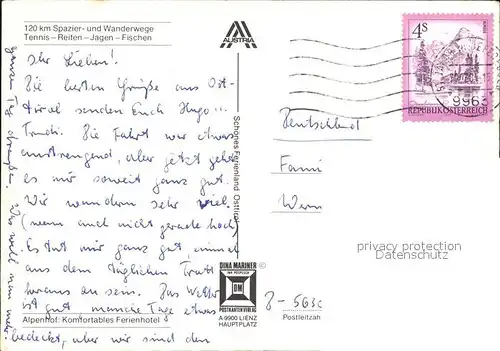 120 km Spazier- und Wanderwege
Tennis – Reiten – Jagen – Fischen
Ihr Lieben!
Die besten Grüße aus Ost-
tirol senden Euch Hugo
Trudi. Die Fahrt war etwas
anstrengend, aber jetzt geht
es mir soweit ganz gut.
Wir wandern sehr viel
(wenn auch nicht gerade hoch)
Es tut mir ganz gut, einmal
aus dem täglichen Trott
heraus zu sein. Das Wetter
ist gut, manche Tage etwas
bedeckt, aber wir sind den
ganzen Tag draußen. Was will man mehr.
Alpenhof: Komfortables Ferienhotel
AUSTRIA
Schönes Ferienland Osttirol
DINA MARINER
DM
POSTKARTENVERLAG
A-9900 LIENZ
HAUPTPLATZ
4S
REPUBLIK ÖSTERREICH
9963
Deutschland
Fami
Wern
privacy protection
Datenschutz
D-5630
Postleitzahl